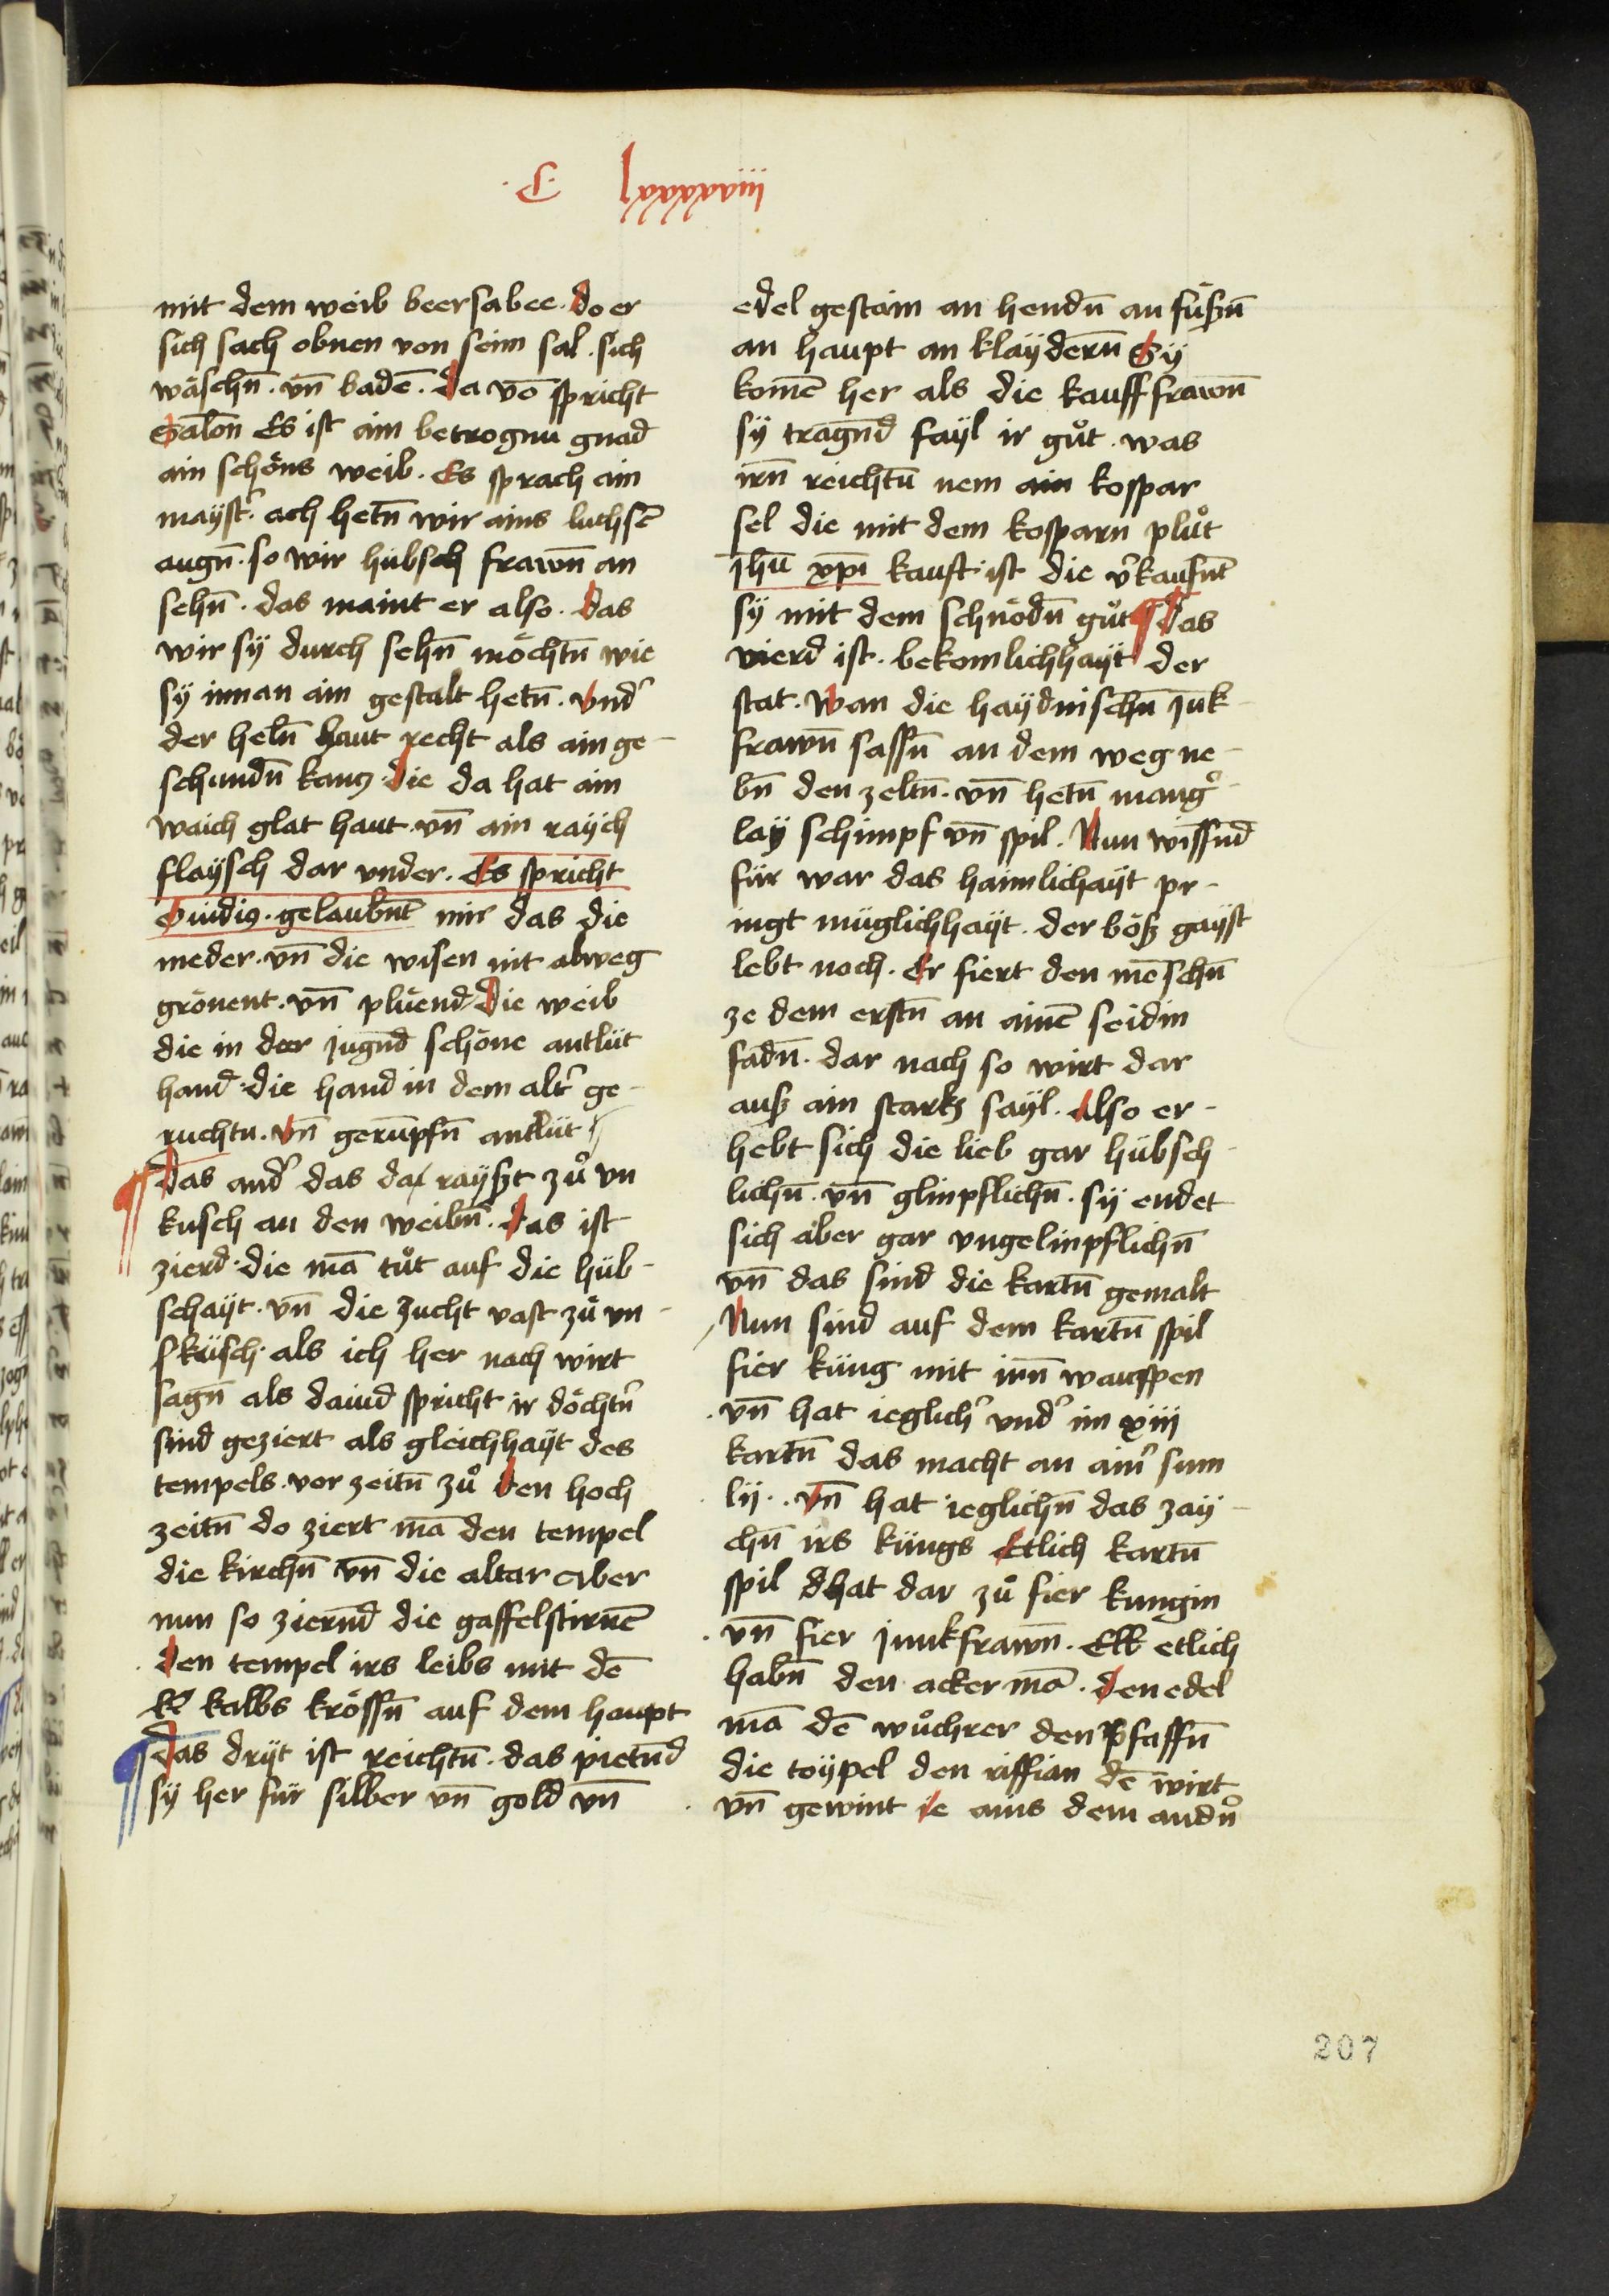 .C. lxxxxxviiij
mit dem weib beersabee. do er
sich sach obnen von seim sal. sich
wäschn̄. vn̄ badē. da vō spricht
Salon̄ Es ist ain betrognu gnad
ain schöns weib. Es sprach ain
mayst͛. ach hetn̄ wir ains luchsē
augn̄. so wir hübsch frawn̄ an
sehn̄. das maint er also. das
wir sÿ durch sehn̄ möchtn̄ wie
sÿ innan ain gestalt hetn̄. vnd͛
der heln̄ haut recht als ain ge-
schundn̄ kancz. die da hat ain
waich glat haut. vn̄ ain raÿch
flaÿsch dar vnder. Es spricht
Ouidiꝰ. gelaubn̄t mir das die
meder. vn̄ die wisen nit alweg
grönent. vn̄ plüend. Die weib
die in der jugn̄d schöne antlüt
hand. die hand in dem alt͛ ge-
ruchtn. vn̄ gerumpfn̄ antlüt
das and͛ das da raÿßt zů vn
kusch an den weibn̄. das ist
zierd. die mā tůt auf die hüb-
schaÿt. vn̄ die zucht vast zů vn-
küsch. als ich her nach wirt
sagn̄ als dauid spricht ir döcht͛n
sind geziert als gleichhaÿt des
tempels. vor zeitn̄ zů den hoch
zeitn̄ do ziert mā den tempel
die kirchn̄ vn̄ die altar aber
nun so ziern̄d die gaffelstirnē
den tempel irs leibs mit dē
kalbs krössn̄ auf dem haupt
das drÿt ist reichtū. das pietn̄d
sÿ her für silber vn̄ gold vn̄
edel gestain an hendn̄ an füßn̄
an haupt an klaÿdern̄ Sÿ
komē her als die kauff frawn̄
sÿ tragn̄d faÿl ir gůt. was
irn̄ reichtū nem ain kospar
sel die mit dem kosparn plůt
jhū xp̄i kauft. ist die v͛kaufn̄t
sÿ mit dem schnödn̄ gůt das
vierd ist. bekomlichhaÿt der
stat. wan die haÿdnischn̄ junk-
frawn̄ sassn̄ an dem weg ne-
bn̄ den zeltn̄. vn̄ hetn̄ mang͛-
laÿ schimpf vn̄ spil. Nun wissn̄d
für war das haimlichaÿt pr-
ingt müglichhaÿt. der böß gaÿst
lebt noch. Er fiert den mēschn̄
ze dem erstn̄ an ainē seidin
fadn̄. dar nach so wirt dar
auß ain starkß saÿl. also er-
hebt sich die lieb gar hübsch-
lichn̄. vn̄ glinpflichn̄. sÿ endet
sich aber gar vngelinpflichn̄
vn̄ das sind die kartn̄ gemalt
Nun sind auf dem kartn̄ spil
fier küng mit irn̄ wauppen
vn̄ hat ieglich͛ vnd͛ im xiij
kartn̄ das macht an ain͛ sum
lij. vn̄ hat ieglichn̄ das zaÿ-
chn̄ irs küngs Etlich kartn̄
spil hat dar zů fier kungin
vn̄ fier junkfrawn̄. etlich
habn̄ den acker mā. den edel
mā dē wůchrer den pfaffn̄
die toÿpel den riffian dē wirt
vn̄ gewint ie ains dem andn͛
207